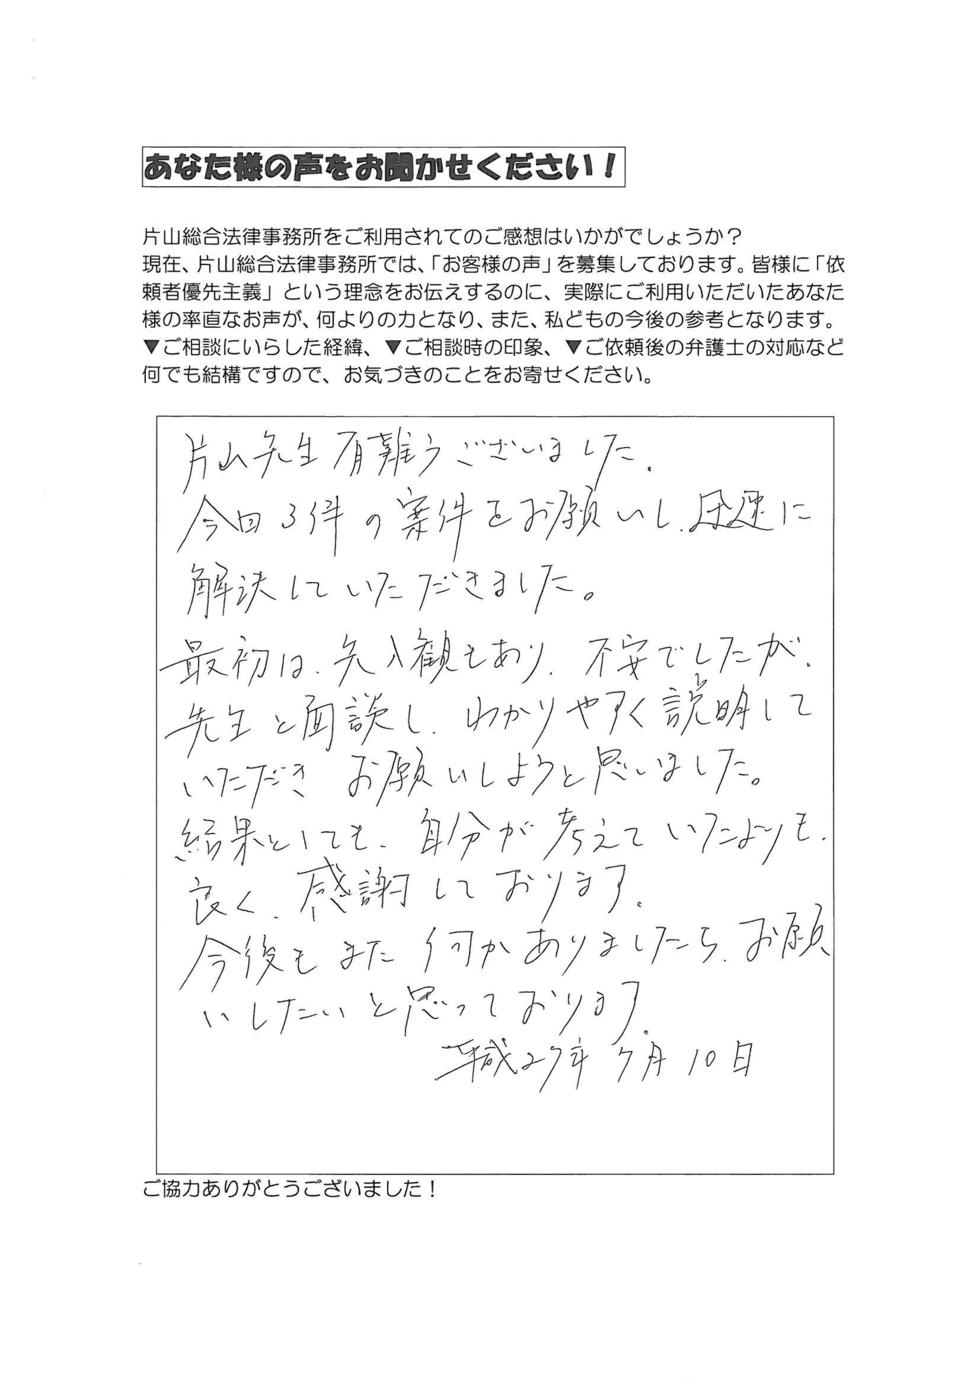 あなた様の声をお聞かせください！
片山総合法律事務所をご利用されてのご感想はいかがでしょうか？
現在、片山総合法律事務所では、「お客様の声」を募集しております。皆様に「依
頼者優先主義」という理念をお伝えするのに、実際にご利用いただいたあなた
様の率直なお声が、何よりの力となり、また、私どもの今後の参考となります。
▼ご相談にいらした経緯、▼ご相談時の印象、▼ご依頼後の弁護士の対応など
何でも結構ですので、お気づきのことをお寄せください。
片山先生有難うございました。
今回3件の案件をお願いし、迅速に
解決していただきました。
最初は、先入観もあり、不安でしたが、
先生と面談し、わかりやすく説明して
いただき お願いしようと思いました。
結果としても、自分が考えていたよりも、
良く、感謝しております。
今後もまた何かありましたら、お願
いしたいと思っております。
平成27年7月10日
ご協力ありがとうございました！